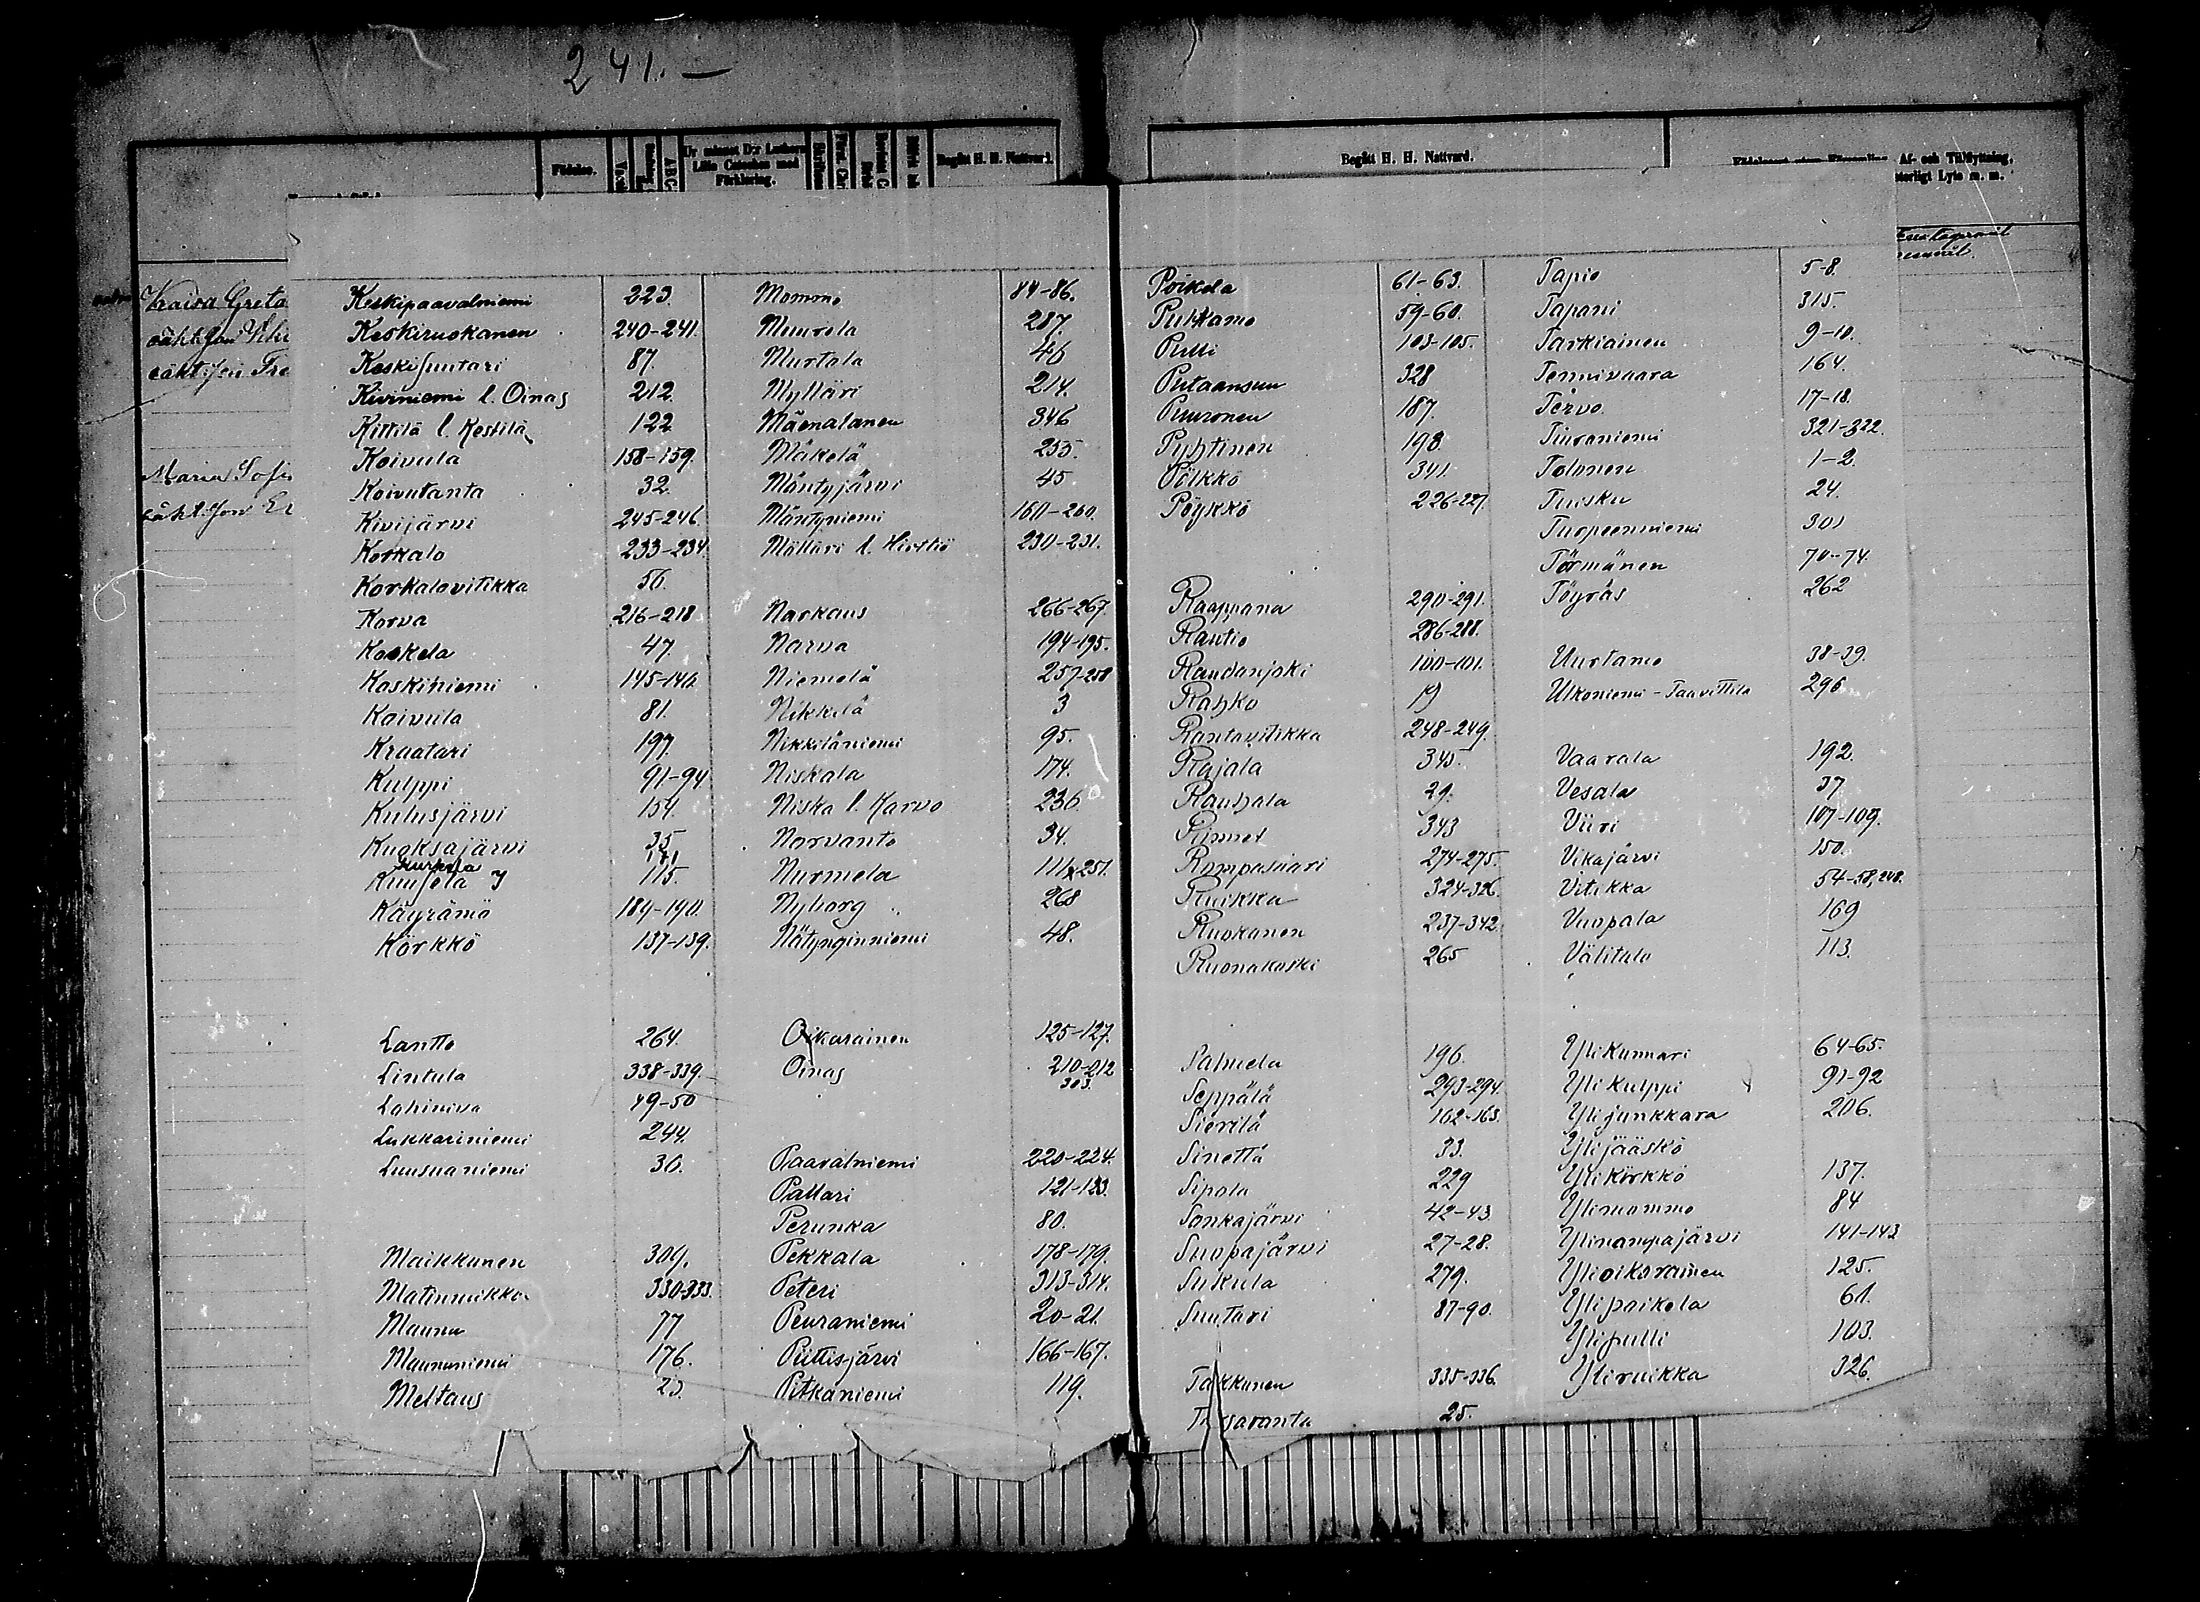 241. —
Födelse.
Begått H. H. Nattvard.
Ur minnet D:r Luthers
Lilla Cateches med
Förklaring.
ABC
Kaisa Greta
Maria Sofi
Keskipaavalniemi 223.
Keskiruokanen 240-241.
Keskisuutari 87.
Kiviniemi l. Oinas 212.
Kittilä l. Kestilä 122
Koivula 158-159.
Koivuranta 32.
Kivijärvi 245-246.
Korkalo 233-234.
Korkalovitikka 56.
Korva 216-218
Koskela 47.
Koskiniemi 145-146.
Koivula 81.
Kraatari 197.
Kulppi 91-94
Kulusjärvi 154.
Kuoksajärvi 35
Kurkela 171
Kuusela 115.
Käyrämö 189-190.
Körkkö 137-139.
Lantto 264.
Lintula 338-339.
Lohiniva 49-50
Lukkariniemi 244.
Luusuaniemi 36.
Maikkunen 309.
Matinmikko 330-333.
Maunu 77
Maununiemi 176.
Meltaus 23.
Mommo 84-86.
Muurola 287.
Murtola 46
Mylläri 214.
Mäenalanen 346
Mäkelä 255.
Mäntyjärvi 45
Mäntyniemi 160-260.
Möttäri l. Hirttiö 230-231.
Narkaus 266-267.
Narva 194-195.
Niemelä 257-258
Nikkilä 3
Nikkiläniemi 95.
Niskala 174.
Niska l. Karvo 236
Norvanto 34.
Nurmela 111 251.
Nyborg 268
Nätynginniemi 48.
Oikarainen 125-127.
Oinas 210-212
303.
Paavalniemi 220-224.
Pallari 121-123.
Perunka 80.
Pekkala 178-179.
Peteri 313-314.
Peuraniemi 20-21.
Piittisjärvi 166-167.
Pitkäniemi 119.
Begått H. H. Nattvard.
Af- och Tillflyttning,
Lyte m. m.
Poikela 61-63.
Puhkamo 59-60.
Pulli 103-105.
Putaansuu 328
Puuronen 187.
Pyhtinen 198.
Pölkkö 341.
Pöykkö 226-227.
Raappana 290-291.
Rautio 286-288.
Raudanjoki 100-101.
Rahko 19
Rantavitikka 248-249.
Rajala 345.
Rauhala 29.
343
Rompasaari 274-275.
Ruikka 324-326.
Ruokanen 237-342.
Ruonakoski 265
Salmela 196.
Seppälä 293-294.
Sierilä 162-163.
Sinettä 33.
Sipola 229
Sonkajärvi 42-43.
Suopajärvi 27-28.
Sukula 279.
Suutari 87-90.
Takkunen 335-336.
25.
Tapio 5-8.
Tapani 315.
Tarkiainen 9-10.
Tennivaara 164.
Tervo 17-18.
Tiuraniemi 321-322.
Tolonen 1-2.
Tuisku 24.
Tuopeenniemi 301
Törmänen 70-74.
Töyräs 262
Uurtamo 38-39.
Ulkoniemi - Taavittila 296
Vaarala 192.
Vesala 37
Viiri 107-109.
Vikajärvi 150.
Vitikka 54-58, 248.
Vuopala 169
Välitalo 113.
Ylikunnari 64-65.
Ylikulppi 91-92
Ylijunkkara 206.
Ylijääskö
Ylikörkkö 137.
Ylimommo 84
Ylinampajärvi 141-143
Ylioikarainen 125.
Ylipoikela 61.
Ylipulli 103.
Yliruikka 326.